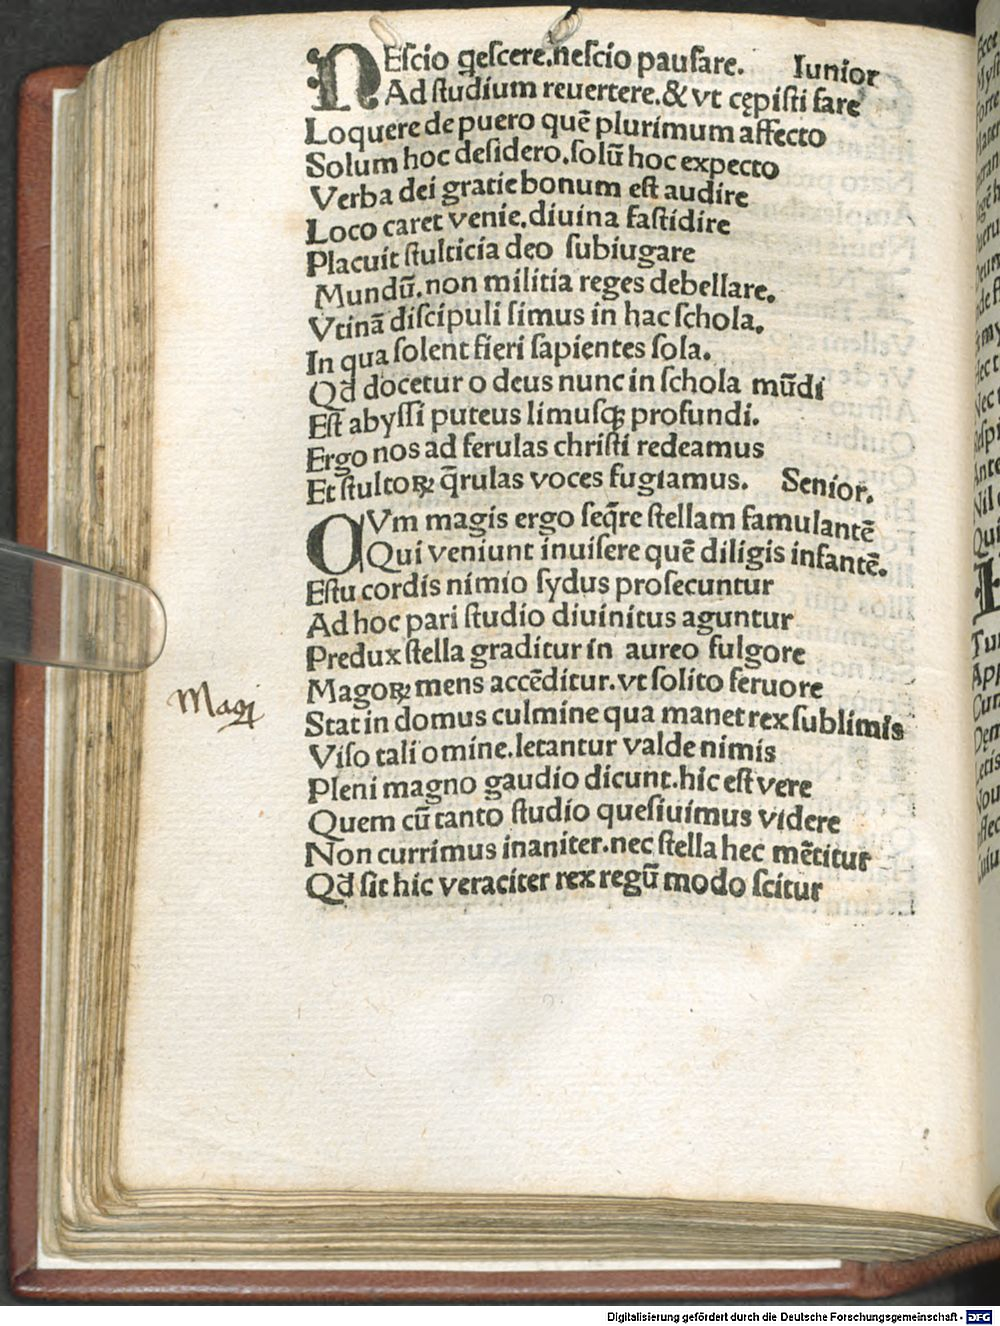 NEscio qescere.nescio pausare. Iunior
Ad studium reuertere.& vt cępisti fare
Loquere de puero quē plurimum affecto
Solum hoc desidero.solū hoc expecto
Verba dei gratie bonum est audire
Loco caret venie.diuina fastidire
Placuit stulticia deo subiugare
Mundū.non militia reges debellare.
Vtinā discipuli simus in hac schola.
In qua solent fieri sapientes sola.
Qd docetur o deus nunc in schola mūdi
Est abyssi puteus limusqꝫ profundi.
Ergo nos ad ferulas christi redeamus
Et stultoꝝ q̄rulas voces fugiamus. Senior.
OVm magis ergo seq̄re stellam famulantē
Qui veniunt inuisere quē diligis infantē.
Estu cordis nimio sydus prosecuntur
Ad hoc pari studio diuinitus aguntur
Predux stella graditur in aureo fulgore
Magoꝝ mens accēditur.vt solito feruore
Magi
Stat in domus culmine qua manet rex sublimis
Viso tali omine.letantur valde nimis
Pleni magno gaudio dicunt.hic est vere
Quem cū tanto studio quesiuimus videre
Non currimus inaniter.nec stella hec mētitur
Qd sit hic veraciter rex regū modo scitur
Digitalisierung gefördert durch die Deutsche Forschungsgemeinschaft - DFG